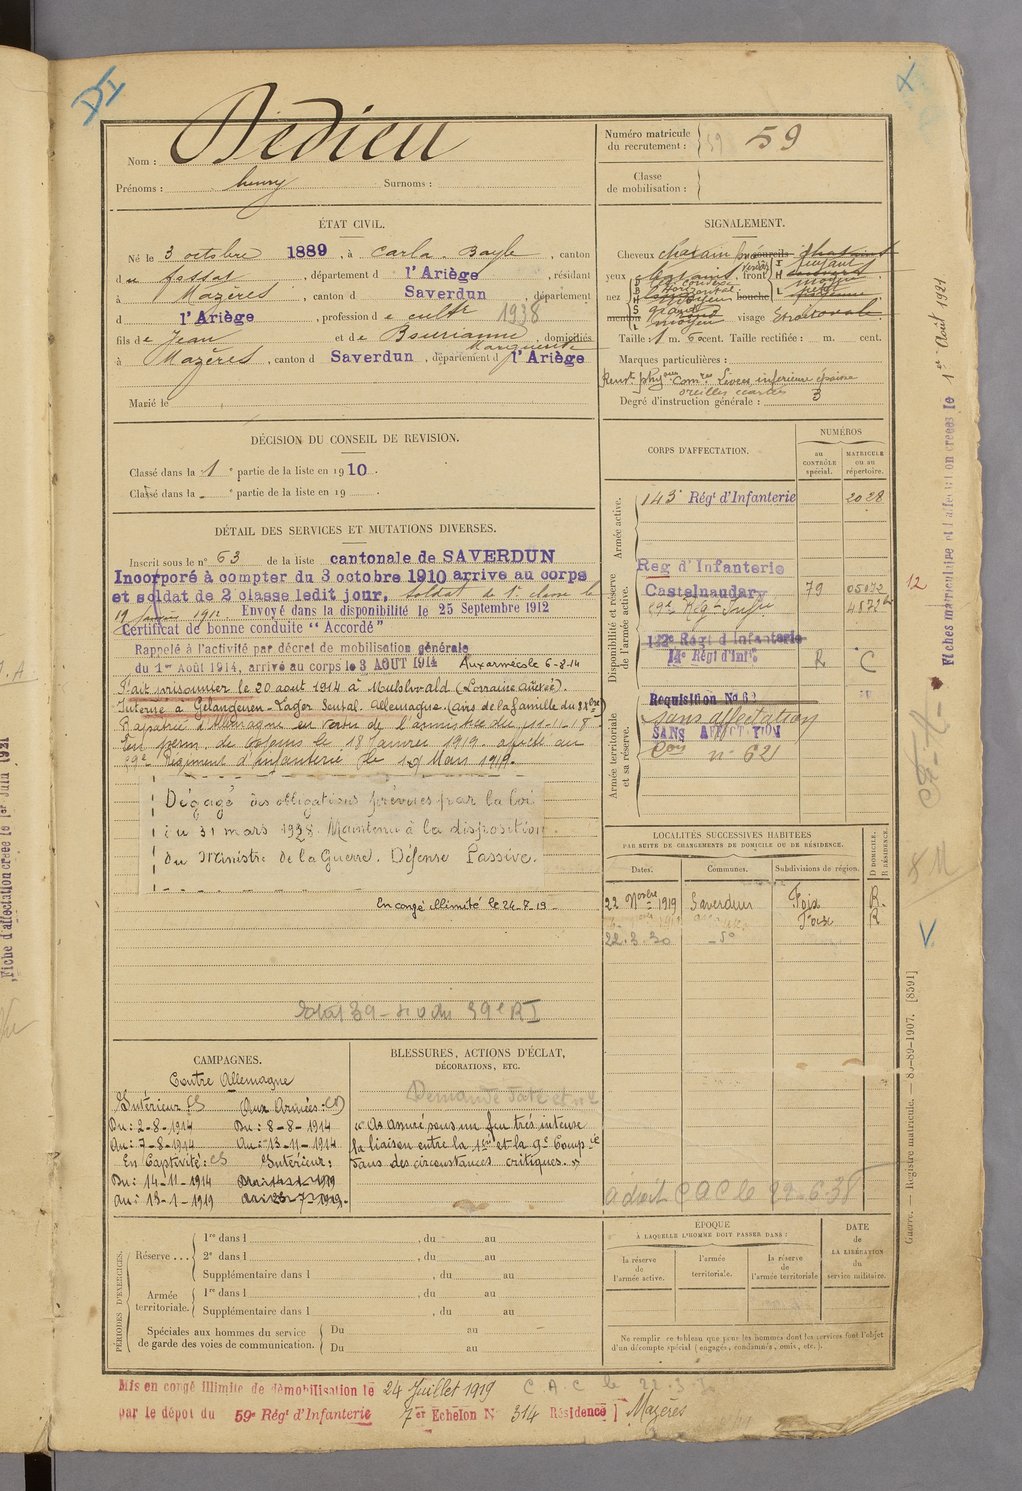 DI
X
Nom : Dedieu
Prénoms : henry Surnoms :
Numéro matricule
du recrutement : 59 59
Classe
de mobilisation :
ÉTAT CIVIL.
Né le 3 octobre 1889, à Carla-Bayle, canton
du fossat, département d l'Ariège, résidant
à Mazères, canton d Saverdun, département
d l'Ariège, profession de cultr 1938
fils de Jean et de Bourianne Marguerite, domiciliés
à Mazères, canton d Saverdun, département d l'Ariège
Marié le
SIGNALEMENT.
Cheveux chatain sourcils chatains
yeux front
nez moyen bouche moyenne
menton rond visage ovale
Taille : 1 m. 60 cent. Taille rectifiée : m. cent.
Marques particulières :
Rens. phy. comres Lèvres inférieure épaisse
oreilles écartées
Degré d'instruction générale : 3
DÉCISION DU CONSEIL DE REVISION.
Classé dans la 1e partie de la liste en 1910.
Classé dans la - e partie de la liste en 19
DÉTAIL DES SERVICES ET MUTATIONS DIVERSES.
Inscrit sous le n° 63 de la liste cantonale de SAVERDUN
Incorporé à compter du 3 octobre 1910 arrive au corps
et soldat de 2 classe ledit jour, Soldat de 1e classe le
19 1912. Envoyé dans la disponibilité le 25 Septembre 1912
Certificat de bonne conduite "Accordé"
Rappelé à l'activité par décret de mobilisation générale
du 1er Août 1914, arrivé au corps le 3 AOUT 1914 Aux armées le 6-8-14
Fait prisonnier le 20 aout 1914 à Muhlwald (Lorraine annexée).
Interné à Gefangenen-Lager Sental Allemagne. (avis de la famille du )
Rapatrié d'Allemagne en vertu de l'armistice du 11-11-18
En perm. de 60 jours le 18 Janvier 1919. affecté au
59e Régiment d'infanterie le 19 Mars 1919.
Dégagé des obligations prévues par la loi
du 31 mars 1928. Maintenu à la disposition
du Ministre de la Guerre. Défense Passive.
En congé illimité le 24-7-19
39 - du 59e RI
CORPS D'AFFECTATION.
NUMÉROS
au
CONTRÔLE
spécial.
MATRICULE
ou au
répertoire.
Armée active.
143e Régt d'Infanterie 2028
Disponibilité et réserve
de l'armée active.
Reg d'Infanterie
Castelnaudary 79 05073
59e Régt Infie 4872
142e Régt d'Infanterie
14e Régt d'Infie R C
Armée territoriale
et sa réserve.
Requisition No 62
Sans affectation
SANS AFFECTATION
Con n° 621
LOCALITÉS SUCCESSIVES HABITÉES
PAR SUITE DE CHANGEMENTS DE DOMICILE OU DE RÉSIDENCE.
Dates. Communes. Subdivisions de région. D DOMICILE. R RÉSIDENCE.
22 Novbre 1919 Saverdun Foix R.
Foix R
22.3.30 - do
a droit CAC le 22-6-38
CAMPAGNES.
Contre Allemagne
Intérieur CS Aux Armées : CD
Du : 2-8-1914 Du : 8-8-1914
Au : 7-8-1914 Au : 13-11-1914
En Captivité : CS Intérieur :
Du : 14-11-1914 Du : 14-1-1919
Au : 13-1-1919 Au : 23-7-1919.
BLESSURES, ACTIONS D'ÉCLAT,
DÉCORATIONS, ETC.
Demande date et n°
« as assuré sous un feu très intense
la liaison entre la 1ère et la 9e Compie
dans des circonstances critiques. »
PÉRIODES D'EXERCICES.
Réserve ...
1re dans l , du au
2e dans l , du au
Supplémentaire dans l , du au
Armée
territoriale.
1re dans l , du au
Supplémentaire dans l , du au
Spéciales aux hommes du service
de garde des voies de communication.
Du au
Du au
ÉPOQUE
À LAQUELLE L'HOMME DOIT PASSER DANS :
la réserve
de
l'armée active.
l'armée
territoriale.
la réserve
de
l'armée territoriale
DATE
de
LA LIBÉRATION
du
service militaire.
Ne remplir ce tableau que pour les hommes dont les services font l'objet
d'un décompte spécial (engagés, condamnés, omis, etc.).
Mis en congé illimité de démobilisation le 24 Juillet 1919 C.A.C le 22.3.
par le dépôt du 59e Régt d'Infanterie 7er Echelon N° 314 Résidence Mazères
Fiches matriculaire et d'affectation créées le 1er Août 1921
12
Guerre. — Registre matricule. — 85-89-1907. [8591]
Fiche d'affectation créée le 1er Juin 1921